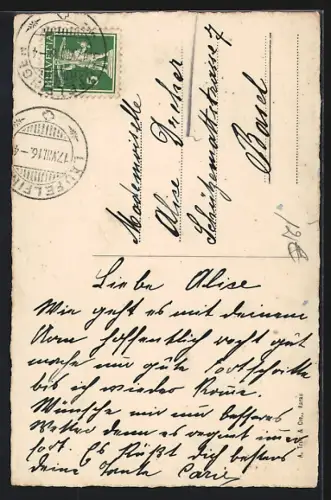 HELVETIA
5
LÄUFELFINGEN
17.VII.16.-4
Mademoiselle
Alice Dreher
Schützenmattstrasse 7
Basel
Liebe Alice
Wie geht es mit deinem
Arm hoffentlich recht gut
mache nur gute Fortschritte
bis ich wieder komme.
Wünsche mir nur besseres
Wetter denn es regnet immer
fort. Es Küßt dich bestens
deine Tante